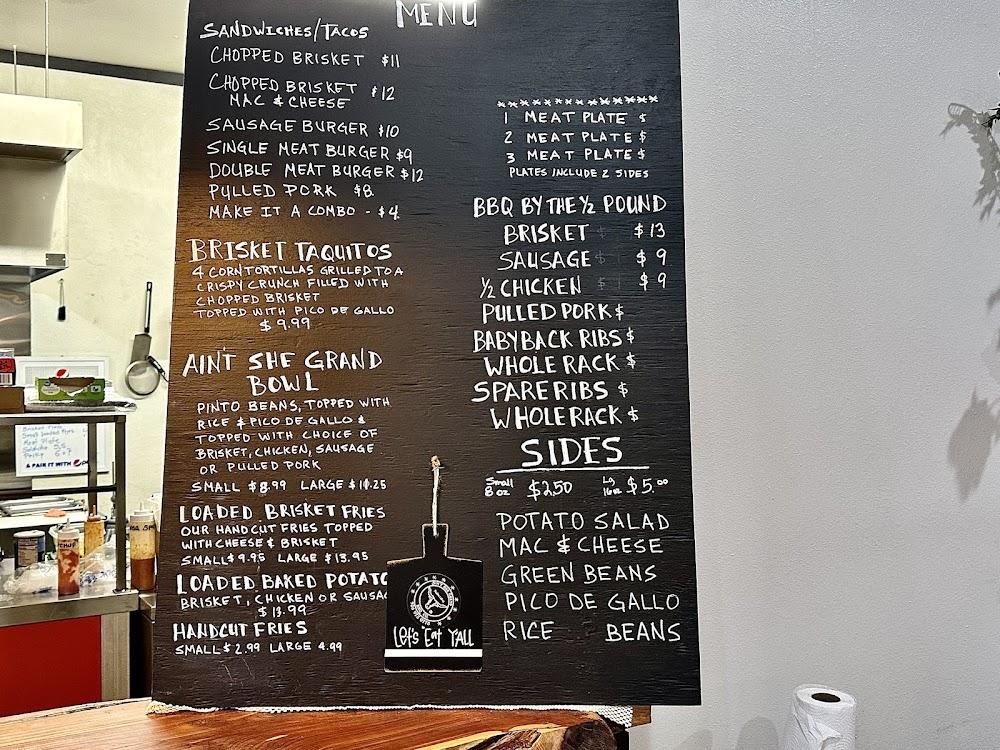 MENU
SANDWICHES/TACOS
CHOPPED BRISKET $11
CHOPPED BRISKET $12
MAC & CHEESE
SAUSAGE BURGER $10
SINGLE MEAT BURGER $9
DOUBLE MEAT BURGER $12
PULLED PORK $8
MAKE IT A COMBO - $4
BRISKET TAQUITOS
4 CORN TORTILLAS GRILLED TO A
CRISPY CRUNCH FILLED WITH
CHOPPED BRISKET
TOPPED WITH PICO DE GALLO
$9.99
AIN'T SHE GRAND
BOWL
PINTO BEANS, TOPPED WITH
RICE & PICO DE GALLO &
TOPPED WITH CHOICE OF
BRISKET, CHICKEN, SAUSAGE
OR PULLED PORK
SMALL $8.99 LARGE $11.25
LOADED BRISKET FRIES
OUR HANDCUT FRIES TOPPED
WITH CHEESE & BRISKET
SMALL $9.95 LARGE $13.95
LOADED BAKED POTATO
BRISKET, CHICKEN OR SAUSAG
$13.99
HANDCUT FRIES
SMALL $2.99 LARGE 4.99
1 MEAT PLATE $
2 MEAT PLATE $
3 MEAT PLATE $
PLATES INCLUDE 2 SIDES
BBQ BY THE 1/2 POUND
BRISKET $13
SAUSAGE $9
1/2 CHICKEN $9
PULLED PORK $
BABYBACK RIBS $
WHOLE RACK $
SPARERIBS $
WHOLE RACK $
SIDES
Small 8 oz $2.50 Lg 16oz $5.00
POTATO SALAD
MAC & CHEESE
GREEN BEANS
PICO DE GALLO
RICE BEANS
Let's Eat Y'ALL
& PAIR IT WITH